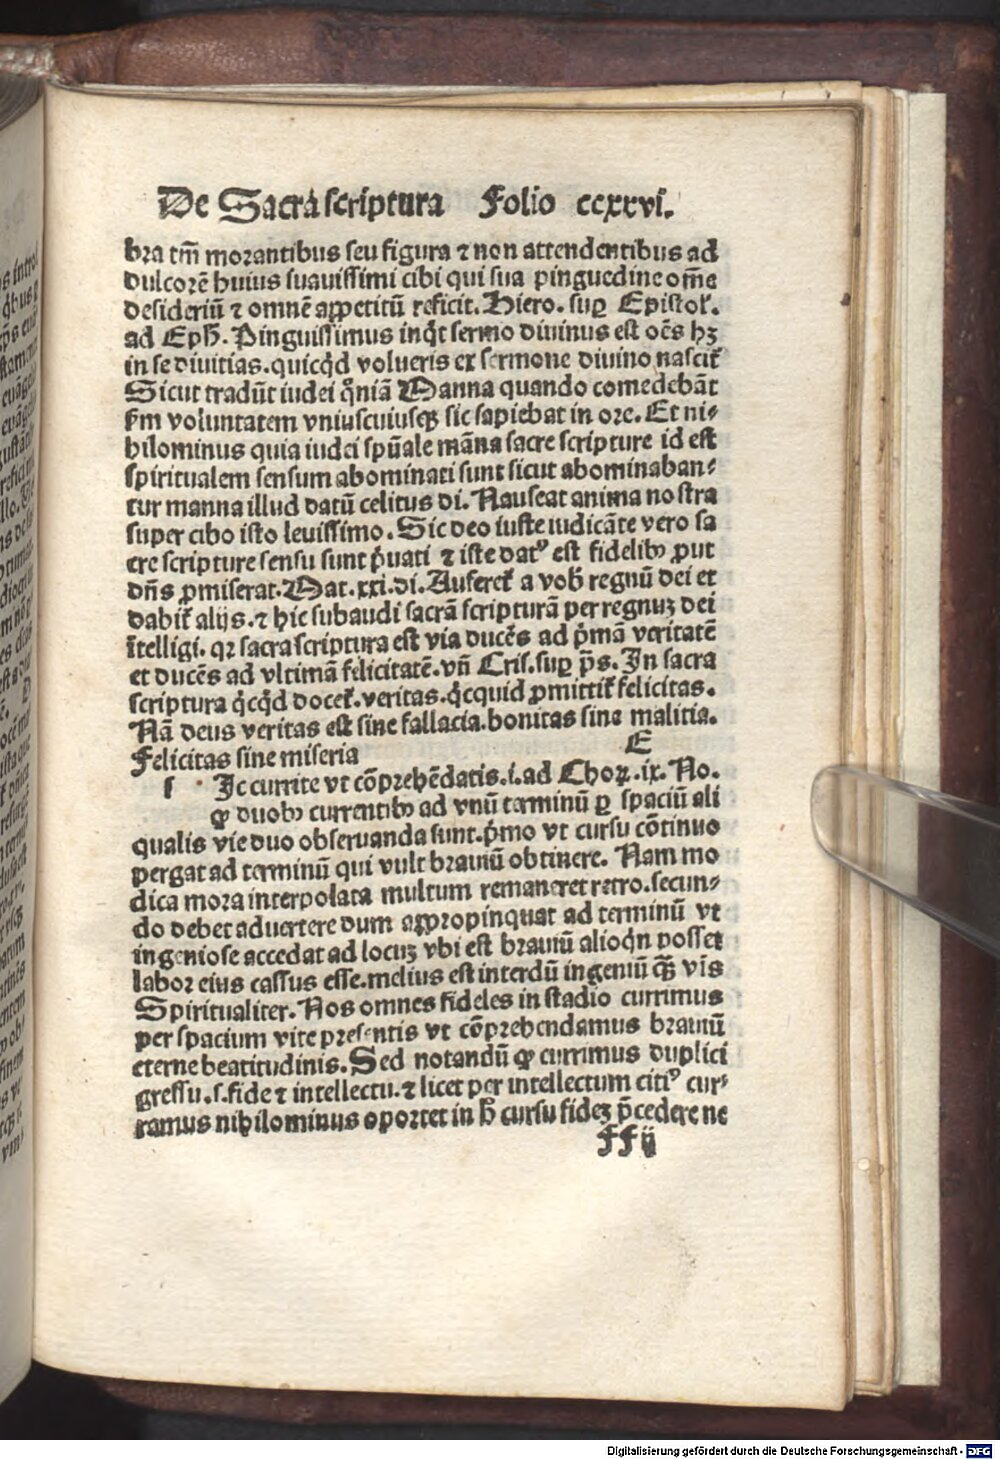 De Sacra scriptura Folio ccxxvi.
bra tm̄ morantibus seu figura ⁊ non attendentibus ad
dulcorē huius suauissimi cibi qui sua pinguedine om̄e
desideriū ⁊ omnē appetitū reficit. Hiero. suꝑ Epistol̛.
ad Eph̄. Pinguissimus inqͥt sermo diuinus est oēs hꝫ
in se diuitias. quicqͥd volueris ex sermone diuino nascit᷑
Sicut tradūt iudei qm̄niā Manna quando comedebāt
ẜm voluntatem vniuscuiusqꝫ sic sapiebat in ore. Et ni⸗
hilominus quia iudei spūale māna sacre scripture id est
spiritualem sensum abominati sunt sicut abominaban⸗
tur manna illud datū celitus di. Nauseat anima nostra
super cibo isto leuissimo. Sic deo iuste iudicāte vero sa
cre scripture sensu sunt pͥuati ⁊ iste datꝰ est fidelibꝫ ꝓut
dn̄s ꝓmiserat. Mat. xxi. di. Auferet᷑ a vob̄ regnū dei et
dabit᷑ alijs. ⁊ hic subaudi sacrā scripturā per regnuꝫ dei
ītelligi. qꝛ sacra scriptura est via ducēs ad pͥmā veritatē
et ducēs ad vltimā felicitatē. vn̄ Cris. suꝑ p̄s. In sacra
scriptura qͥcqͥd docet᷑. veritas. qͥcquid ꝓmittit᷑ felicitas.
Nā deus veritas est sine fallacia. bonitas sine malitia.
Felicitas sine miseria E
s Ic currite vt cōprehēdatis. i. ad Choꝝ. ix. No.
ꝙ duobꝫ currentibꝫ ad vnū terminū ꝑ spaciū ali
qualis vie duo obseruanda sunt. pͥmo vt cursu cōtinuo
pergat ad terminū qui vult brauiū obtinere. Nam mo
dica mora interpolata multum remaneret retro. secun⸗
do debet aduertere dum appropinquat ad terminū vt
ingeniose accedat ad locuꝫ vbi est brauiū alioqͥn posset
labor eius cassus esse. melius est interdū ingeniū qꝫ̄ vīs
Spiritualiter. Nos omnes fideles in stadio currimus
per spacium vite presentis vt cōprehendamus brauiū
eterne beatitudinis. Sed notandū ꝙ currimus duplici
gressu. s. fide ⁊ intellectu. ⁊ licet per intellectum citiꝰ cur⸗
ramus nihilominus oportet in h̄ cursu fideꝫ p̄cedere ne
ff ij
Digitalisierung gefördert durch die Deutsche Forschungsgemeinschaft - DFG